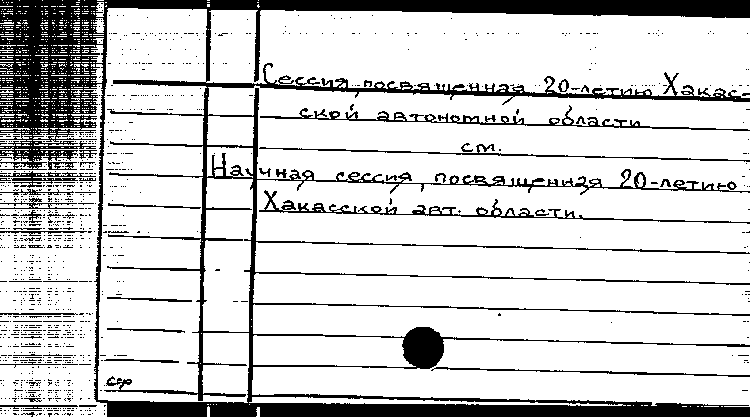 Сессия, посвященная 20-летию Хакас-
ской автономной области
см.
Научная сессия, посвященная 20-летию
Хакасской авт. области.
ср